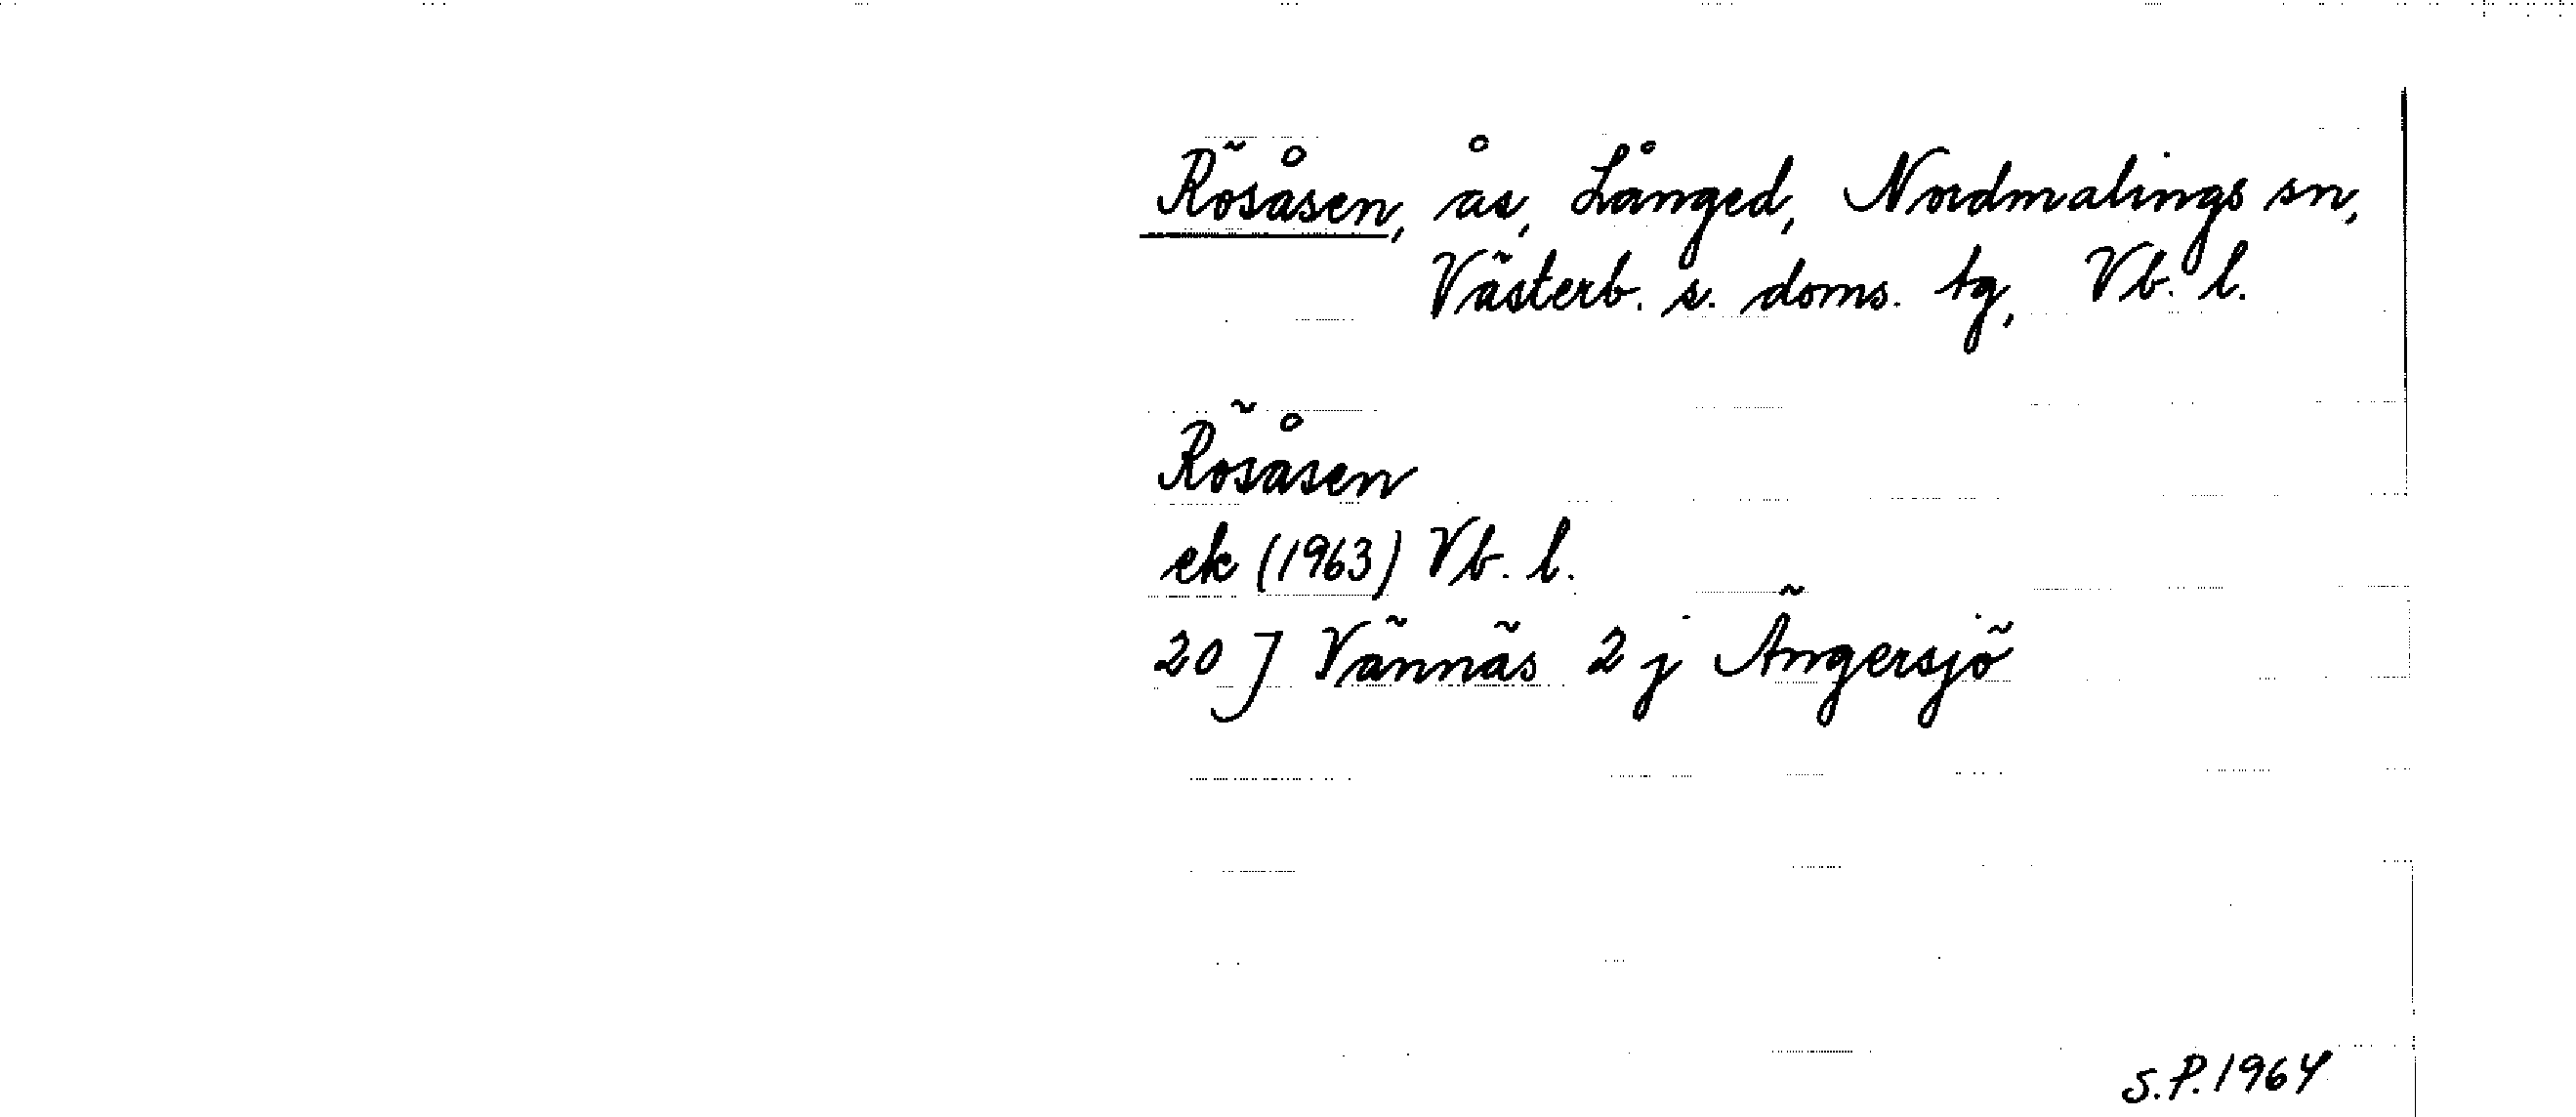 Rösåsen, ås, Långed, Nordmalings sn,
Västerb. s. doms. tg, Vb. l.
Rösåsen
ek (1963) Vb. l.
20 J Vännäs 2 j Ängersjö
S.P. 1964